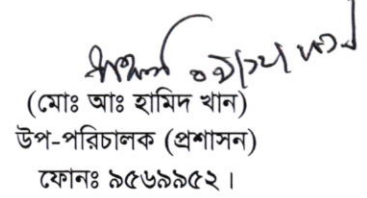 (মোঃ আঃ হামিদ খান)
উপ-পরিচালক (প্রশাসন)
ফোনঃ ৯৫৬৯৯৫২।